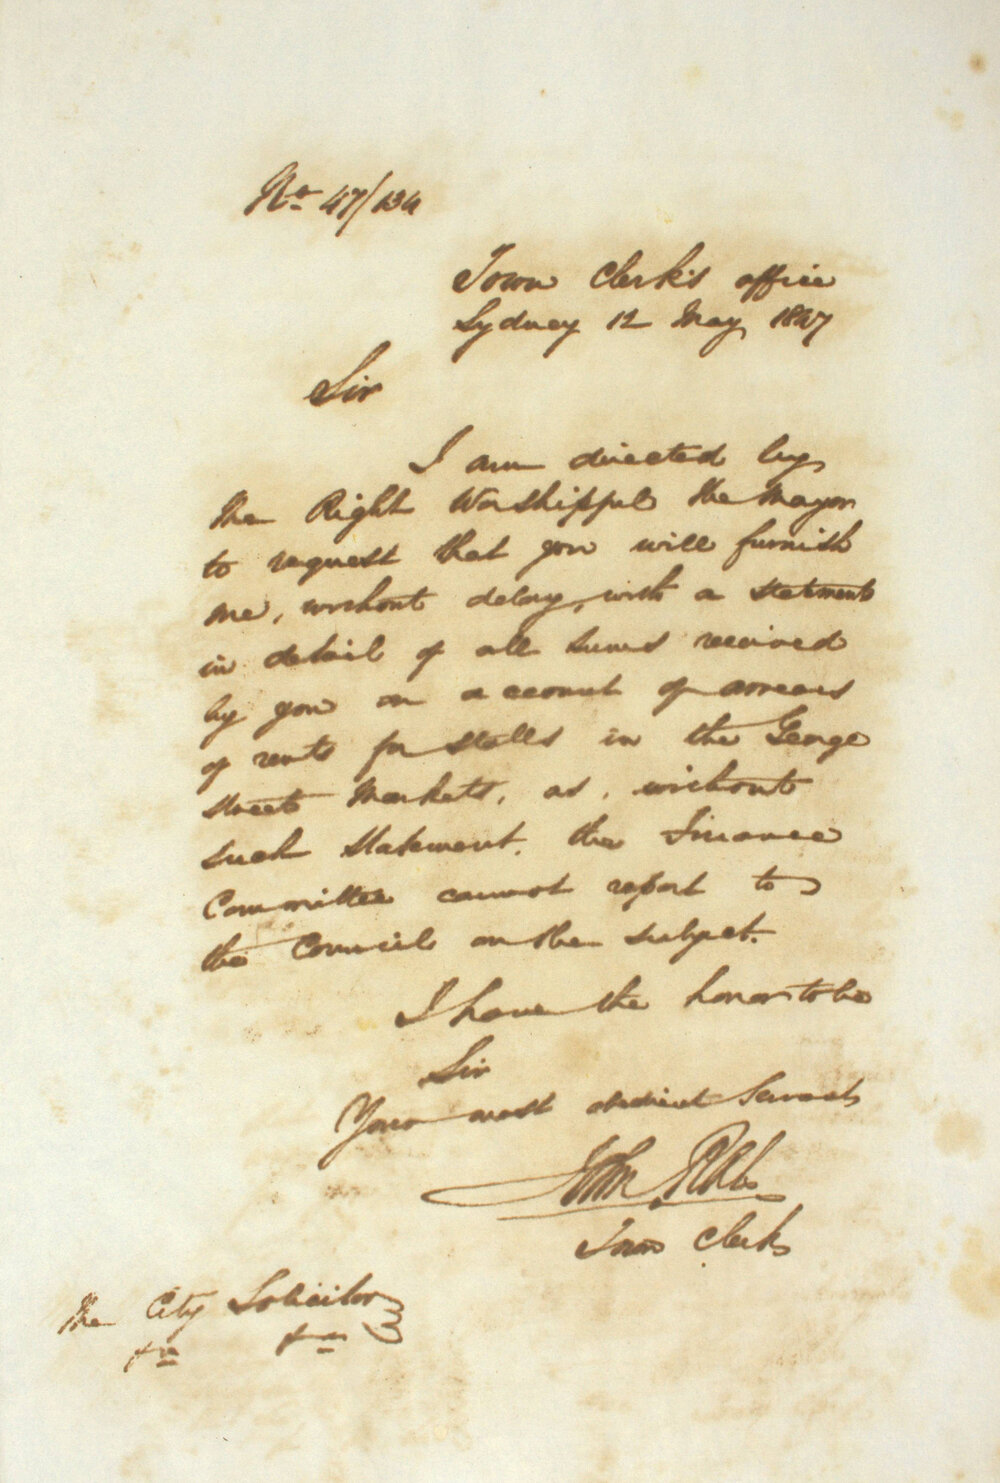 No 47/134
Town Clerk's office
Sydney 12 May 1847
Sir
I am directed by
the Right Worshipful the Mayor
to request that you will furnish
me, without delay, with a statement
in detail of all sums received
by you on account of arrears
of rents for stalls in the George
street Markets, as, without
such statement, the Finance
Committee cannot report to
the Council on the subject.
I have the honor to be
Sir
Your most obedient Servant
John
Town Clerk
The City Solicitor
&c &c